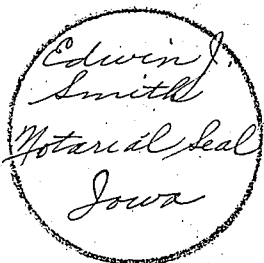 Edwin J.
Smith
Notarial Seal
Iowa